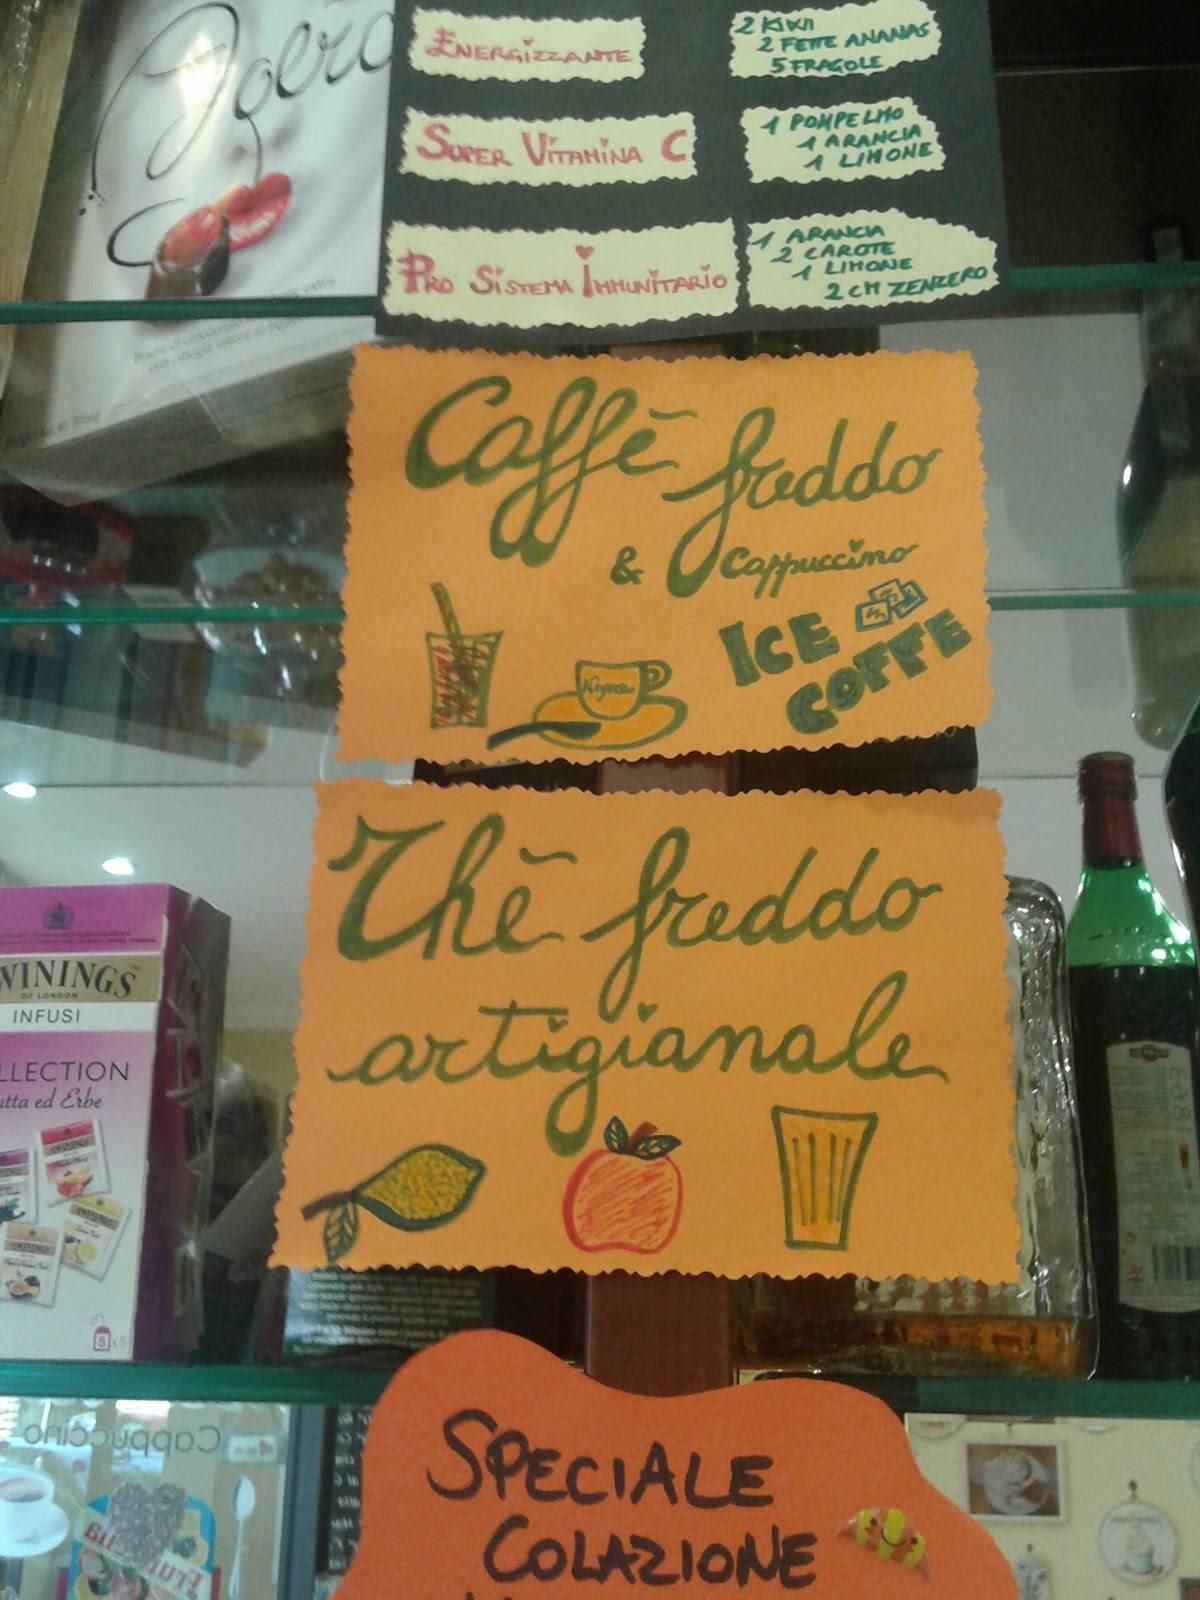 ENERGIZZANTE
2 KIWI
2 FETTE ANANAS
5 FRAGOLE
SUPER VITAMINA C
1 POMPELMO
1 ARANCIA
1 LIMONE
PRO SISTEMA IMMUNITARIO
1 ARANCIA
2 CAROTE
1 LIMONE
2 CM ZENZERO
Caffè freddo
& Cappuccino
ICE
COFFE
Thè freddo
artigianale
WININGS
OF LONDON
INFUSI
LLECTION
utta ed Erbe
5x5
Cappuccino
SPECIALE
COLAZIONE